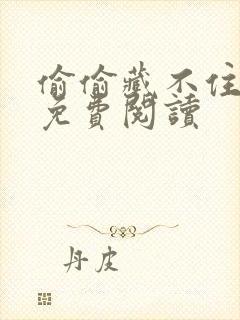 偷偷藏不住
免費閱讀
丹皮